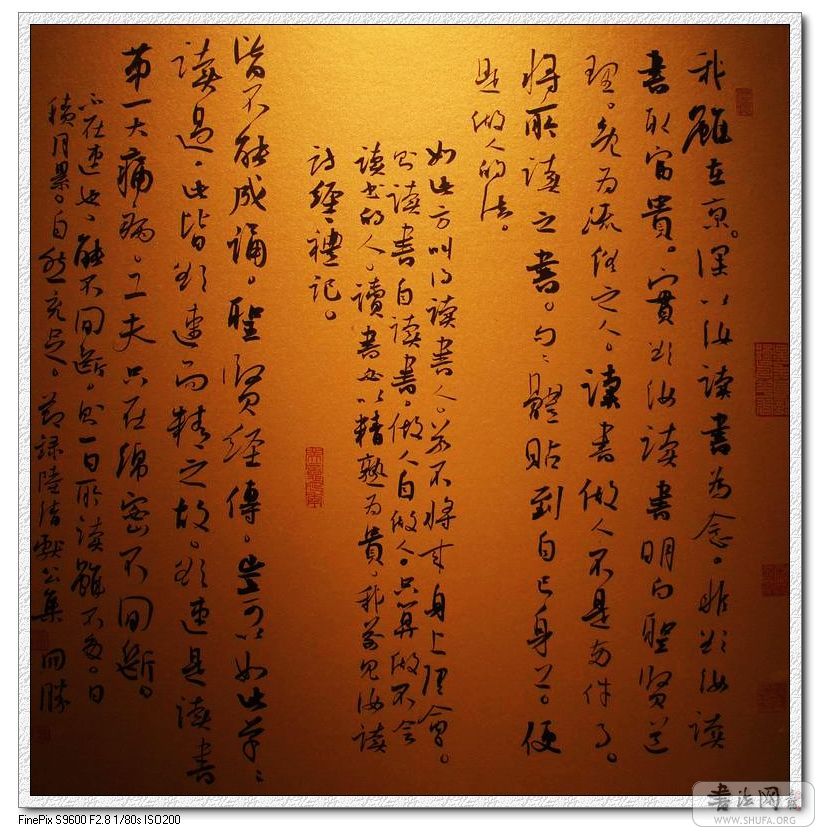 我雖在京。深以汝读書為念。非欲汝读
書取富貴。實欲汝读書明白聖賢道
理。免為流俗之人。读書做人不是兩件事。
將所读之書。句々體貼到自己身上。便
是做人的法。
如此方叫得读書人。若不將来身上理會。
則读書自读書。做人自做人。只算做不会
读书的人。讀書必以精熟為貴。我前見汝读
詩經、禮記。
皆不能成誦。聖賢經傳。豈可以如此草々
读過。此皆欲速而精之故。欲速是读書
第一大痛病。工夫只在綿密不間断。
不在速也、能不間断。則一日所读雖不多。日
積月累。自然充足。節録陸清獻公集
書法网
WWW.SHUFA.ORG
FinePix S9600 F2.8 1/80s ISO200